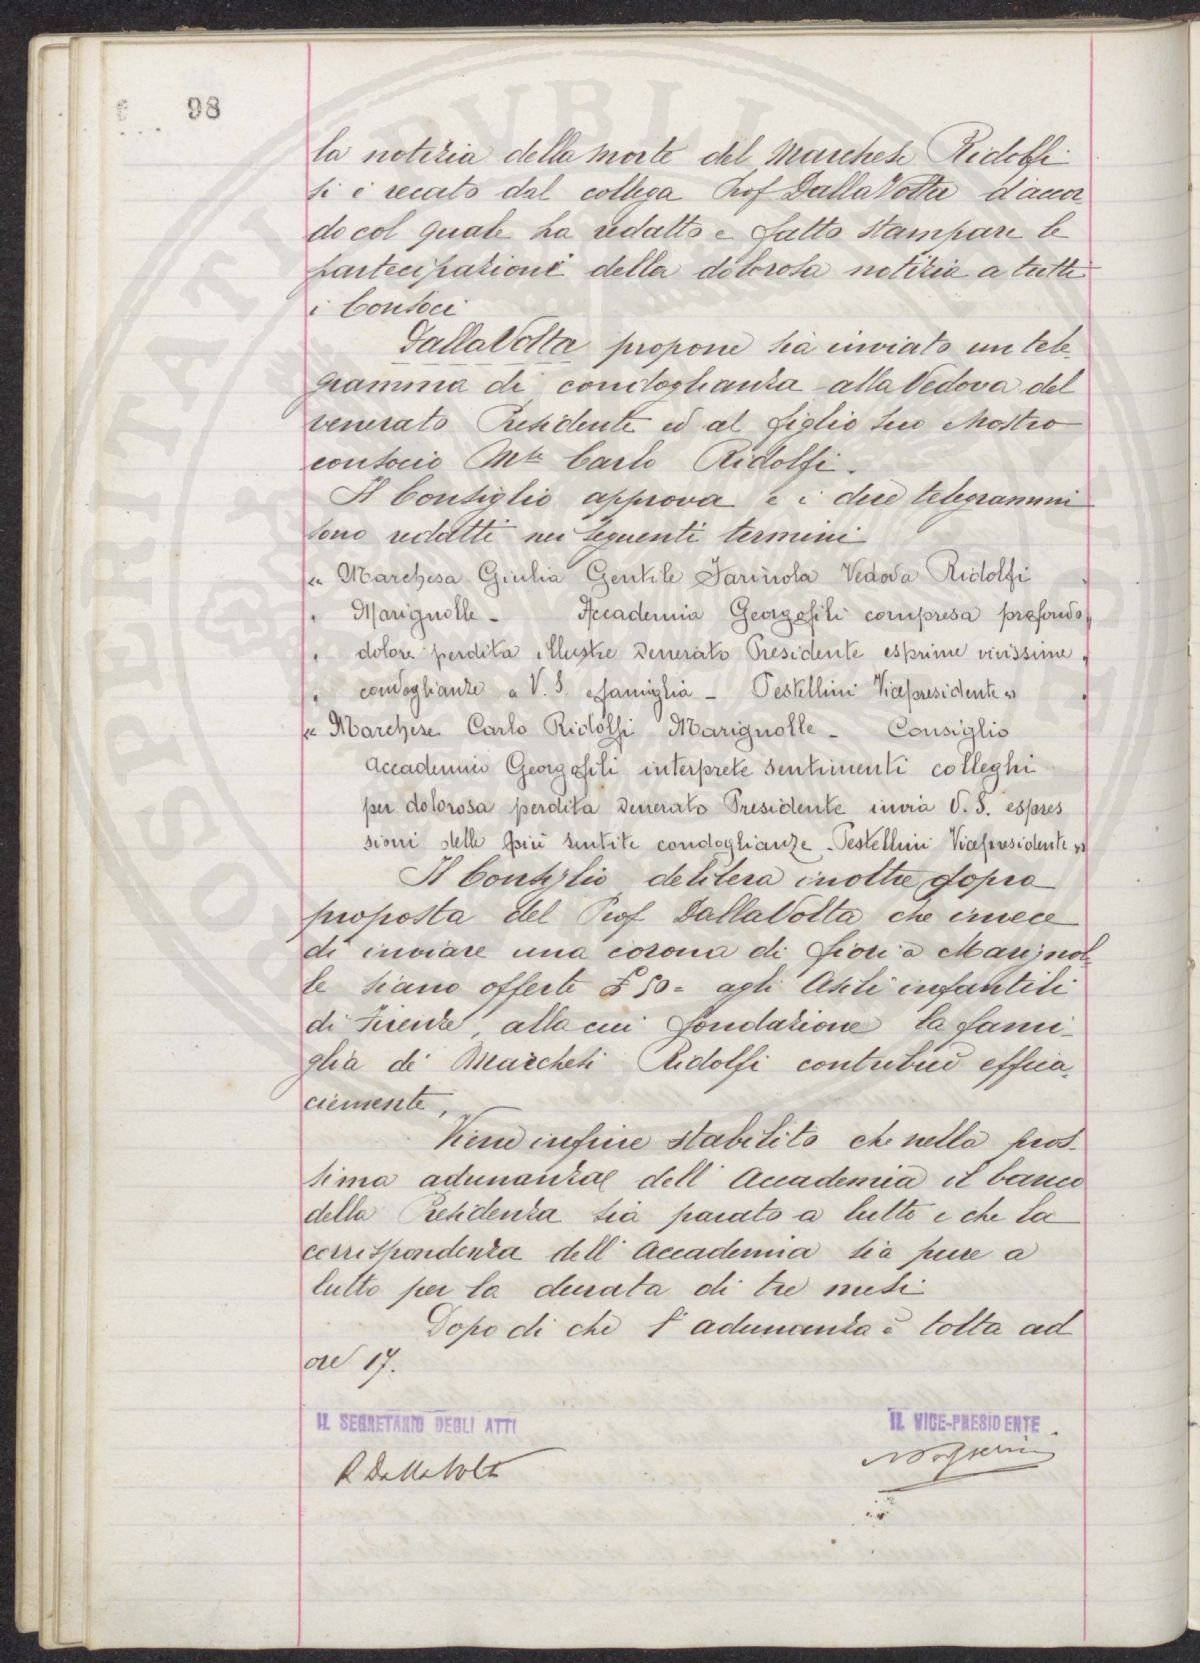 98
la notizia della morte del Marchese Ridolfi
si è recato dal collega Prof Dalla Volta d'accor-
do col quale ha redatto e fatto stampare le
partecipazioni della dolorosa notizia a tutti
i Consoci
Dalla Volta propone sia inviato un tele-
gramma di condoglianza alla Vedova del
venerato Presidente ed al figlio suo Nostro
consocio Mse Carlo Ridolfi.
Il Consiglio approva e i due telegrammi
sono redatti nei seguenti termini
" Marchesa Giulia Gentile Farinola Vedova Ridolfi
" Marignolle - Accademia Georgofili compresa profondo
" dolore perdita illustre Venerato Presidente esprime vivissime
" condoglianze a V. S. e famiglia - Pestellini Vicepresidente "
" Marchese Carlo Ridolfi Marignolle - Consiglio
Accademia Georgofili interprete sentimenti colleghi
per dolorosa perdita Venerato Presidente invia V. S. espres
sioni delle più sentite condoglianze - Pestellini Vicepresidente "
Il Consiglio delibera inoltre sopra
proposta del Prof Dalla Volta che invece
di inviare una corona di fiori a Marignol-
le siano offerte £ 50 = agli Asili infantili
di Firenze, alla cui fondazione la fami-
glia di Marchesi Ridolfi contribuì effica-
cemente.
Viene infine stabilito che nella pros-
sima adunanza dell'Accademia il banco
della Presidenza sia parato a lutto e che la
corrispondenza dell'Accademia sia pure a
lutto per la durata di tre mesi
Dopo di che l'adunanza è tolta ad
ore 17.
IL SEGRETARIO DEGLI ATTI IL VICE-PRESIDENTE
R Dalla Volta
PROSPERITATI PVBLICAE